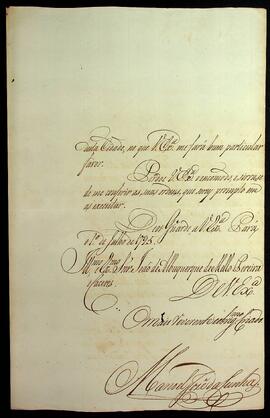 desta Cidade, no que V. Exª me fará hum particular
favor.
Pode V. Exª e servirse
de me conferir as suas ordens, que sou prompto em
as executar.
Deos Guarde a V. Exª Pará
o 1º de Julho de 1795.
Illmo e Exmo Snr João de Albuquerque de Mello Pereira
e Caceres.
De V. Exª
O mais reverente
Manoel da Cunha